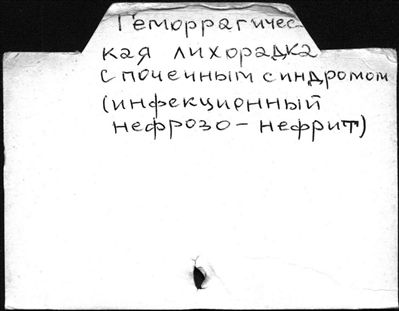 Геморрагичес-
кая лихорадка
с почечным синдромом
(инфекционный
нефрозо-нефрит)